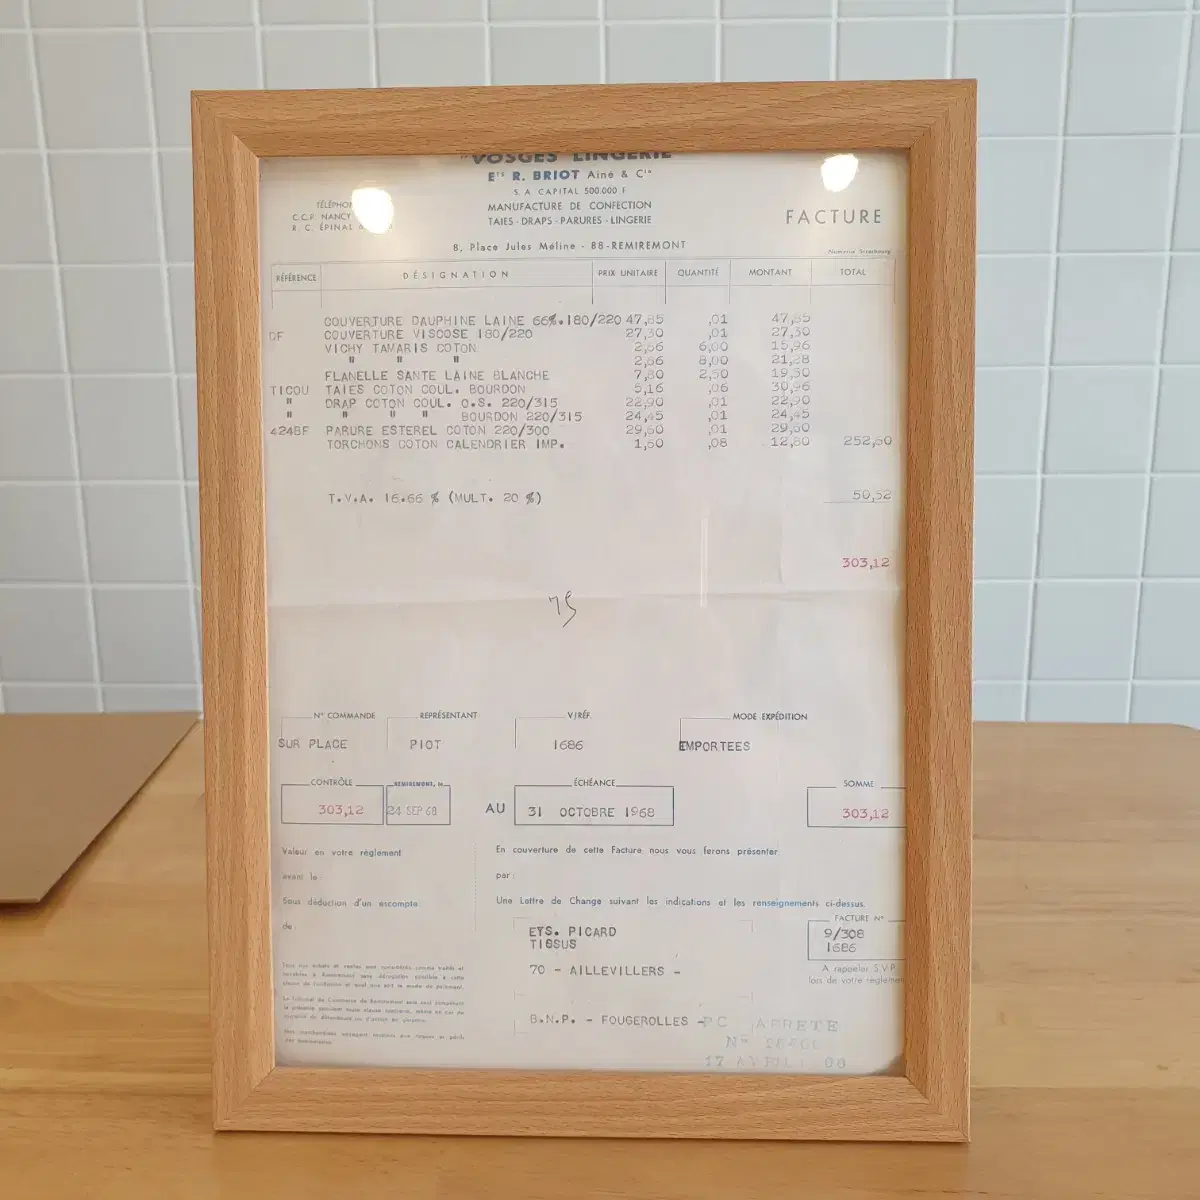 "VOSGES LINGERIE
Ets R. BRIOT Ainé & Cie
S. A. CAPITAL 500.000 F
MANUFACTURE DE CONFECTION
TAIES - DRAPS - PARURES - LINGERIE
C.C.P. NANCY
R. C. ÉPINAL
FACTURE
8, Place Jules Méline - 88-REMIREMONT
RÉFÉRENCE DÉSIGNATION PRIX UNITAIRE QUANTITÉ MONTANT TOTAL
COUVERTURE DAUPHINE LAINE 66%.180/220 47,85 ,01 47,85
DF COUVERTURE VISCOSE 180/220 27,30 ,01 27,30
VICHY TAMARIS COTON 2,66 6,00 15,96
" " " 2,66 8,00 21,28
FLANELLE SANTE LAINE BLANCHE 7,80 2,50 19,50
TICOU TAIES COTON COUL. BOURDON 5,16 ,06 30,96
" DRAP COTON COUL. O.S. 220/315 22,90 ,01 22,90
" " " " BOURDON 220/315 24,45 ,01 24,45
424BF PARURE ESTEREL COTON 220/300 29,60 ,01 29,60
TORCHONS COTON CALENDRIER IMP. 1,60 ,08 12,80 252,60
T.V.A. 16.66 % (MULT. 20 %) 50,52
303,12
75
N° COMMANDE REPRÉSENTANT V/RÉF. MODE EXPÉDITION
SUR PLACE PIOT 1686 EMPORTEES
CONTRÔLE REMIREMONT, le ÉCHÉANCE SOMME
303,12 24 SEP 68 AU 31 OCTOBRE 1968 303,12
Valeur en votre règlement
avant le :
Sous déduction d'un escompte
de :
En couverture de cette Facture nous vous ferons présenter
par :
Une Lettre de Change suivant les indications et les renseignements ci-dessus.
FACTURE N°
9/308
1686
A rappeler S.V.P.
lors de votre règlement
ETS. PICARD
TISSUS
70 - AILLEVILLERS -
B.N.P. - FOUGEROLLES -
P.C. ARRETE
N°
17 AVRIL